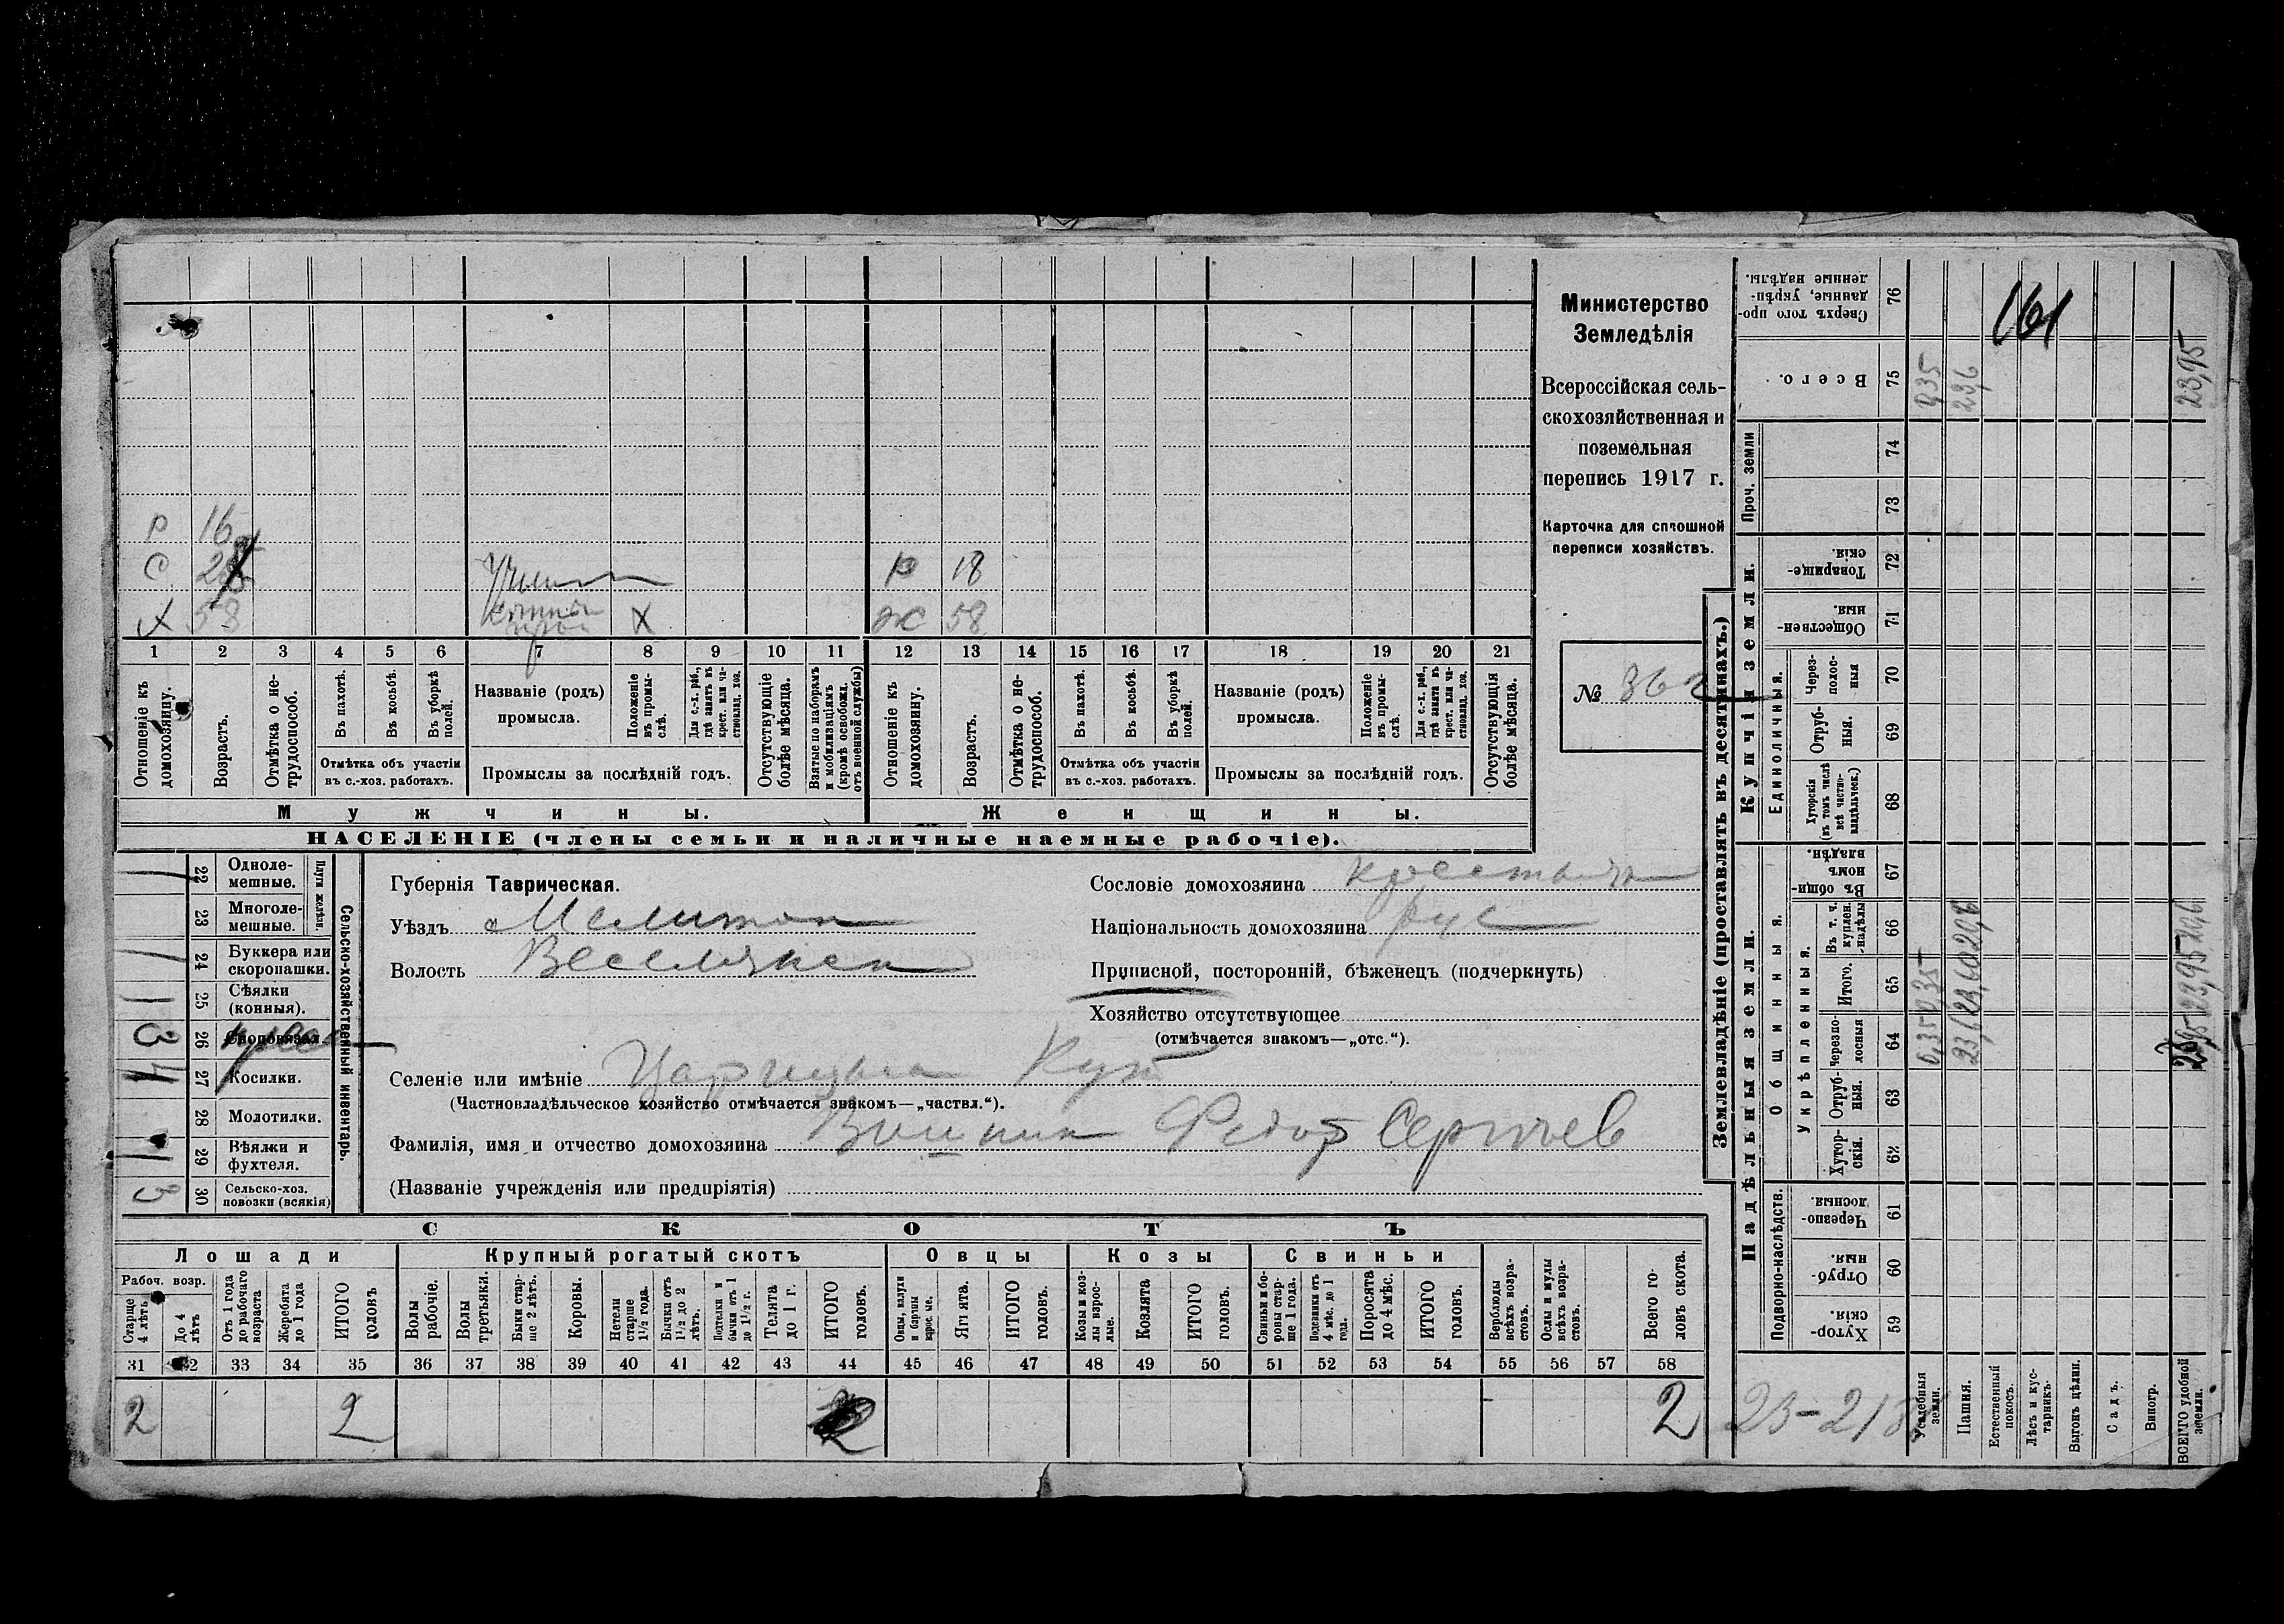 Министерство
Земледѣлія
Всероссійская сель-
скохозяйственная и
поземельная
перепись 1917 г.
Карточка для сплошной
переписи хозяйствъ.
№ 362
161
Р 16
С
Х 58
Х
Р 18
Ж 58
1 2 3 4 5 6 7 8 9 10 11 12 13 14 15 16 17 18 19 20 21
Отношеніе къ домохозяину.
Возрастъ.
Отмѣтка о не-трудоспособ.
Въ пахотѣ.
Въ косьбѣ.
Въ уборкѣ полей.
Отмѣтка объ участіи
въ с.-хоз. работахъ.
Названіе (родъ)
промысла.
Положеніе въ промы-слѣ.
Для с.-х. раб., гдѣ занятъ въ крест. или ча-стновлад. хоз.
Промыслы за послѣдній годъ.
Отсутствующіе болѣе мѣсяца.
Взятые по наборамъ и мобилизаціямъ (кромѣ освобожд. отъ военной службы)
Отношеніе къ домохозяину.
Возрастъ.
Отмѣтка о не-трудоспособ.
Въ пахотѣ.
Въ косьбѣ.
Въ уборкѣ полей.
Отмѣтка объ участіи
въ с.-хоз. работахъ.
Названіе (родъ)
промысла.
Положеніе въ промы-слѣ.
Для с.-х. раб., гдѣ занята въ крест. или ча-стновлад. хоз.
Промыслы за послѣдній годъ.
Отсутствующія болѣе мѣсяца.
Мужчины.
Женщины.
НАСЕЛЕНІЕ (члены семьи и наличные наемные рабочіе).
Сельско-хозяйственный инвентарь.
Плуги желѣзн.
22 Одноле-мешные.
23 Многоле-мешные.
24 Буккера или скоропашки.
1 25 Сѣялки (конныя).
3 26 Сноповязал.
27 Косилки.
28 Молотилки.
1 29 Вѣялки и фухтеля.
3 30 Сельско-хоз. повозки (всякія)
Губернія Таврическая.
Уѣздъ Мелитоп
Волость Веселянск
Сословіе домохозяина крестьян
Національность домохозяина рус
Приписной, посторонній, бѣженецъ (подчеркнуть)
Хозяйство отсутствующее
(отмѣчается знакомъ—„отс.“).
Селеніе или имѣніе Царицын Кут
(Частновладѣльческое хозяйство отмѣчается знакомъ—„частвл.“).
Фамилія, имя и отчество домохозяина Федор Сергѣев
(Названіе учрежденія или предпріятія)
СКОТЪ
Лошади
Крупный рогатый скотъ
Овцы
Козы
Свиньи
Рабоч. возр.
Старше 4 лѣтъ
До 4 лѣтъ
Отъ 1 года до рабочаго возраста
Жеребята до 1 года
ИТОГО головъ
Волы рабочіе.
Волы третьяки.
Быки стар-ше 2 лѣтъ.
Коровы.
Нетели старше 1 1/2 года.
Бычки отъ 1 1/2 до 2 лѣтъ.
Подтелки и бычки отъ 1 до 1 1/2 г.
Телята до 1 г.
ИТОГО головъ.
Овцы, валухи и бараны взрослые.
Ягнята.
ИТОГО головъ.
Козы и коз-лы взрос-лые.
Козлята
ИТОГО головъ.
Свиньи и бо-ровы стар-ше 1 года.
Подсвинки отъ 4 мѣс. до 1 года.
Поросята до 4 мѣс.
ИТОГО головъ.
Верблюды всѣхъ возра-стовъ.
Ослы и мулы всѣхъ возра-стовъ.
Всего го-ловъ скота.
31 32 33 34 35 36 37 38 39 40 41 42 43 44 45 46 47 48 49 50 51 52 53 54 55 56 57 58
2 2 2
Землевладѣніе (проставлять въ десятинахъ.)
Купчія земли.
Надѣльныя земли.
Сверхъ того про-данные, укрѣп-ленные надѣлы. 76
Всего. 75
Проч. земли
74
73
Товарище-скія. 72
Обществен-ныя. 71
Единоличныя.
Через-полос-ныя 70
Отруб-ныя. 69
Хуторскія (въ томъ числѣ всѣ частно-владѣльческ.) 68
Общинныя.
Въ общи-номъ владѣн. 67
Укрѣпленныя.
Въ т. ч. куплен. надѣлы 66
Итого. 65
Черезпо-лосныя 64
Отруб-ныя. 63
Хутор-скія. 62
Подворно-наслѣдств.
Черезпо-лосныя 61
Отруб-ныя. 60
Хутор-скія. 59
Усадебныя земли.
Пашня.
Естественный покосъ.
Лѣсъ и кус-тарникъ.
Выгонъ цѣлин.
Садъ.
Виногр.
ВСЕГО удобной земли.
0,35
23,6
23,95